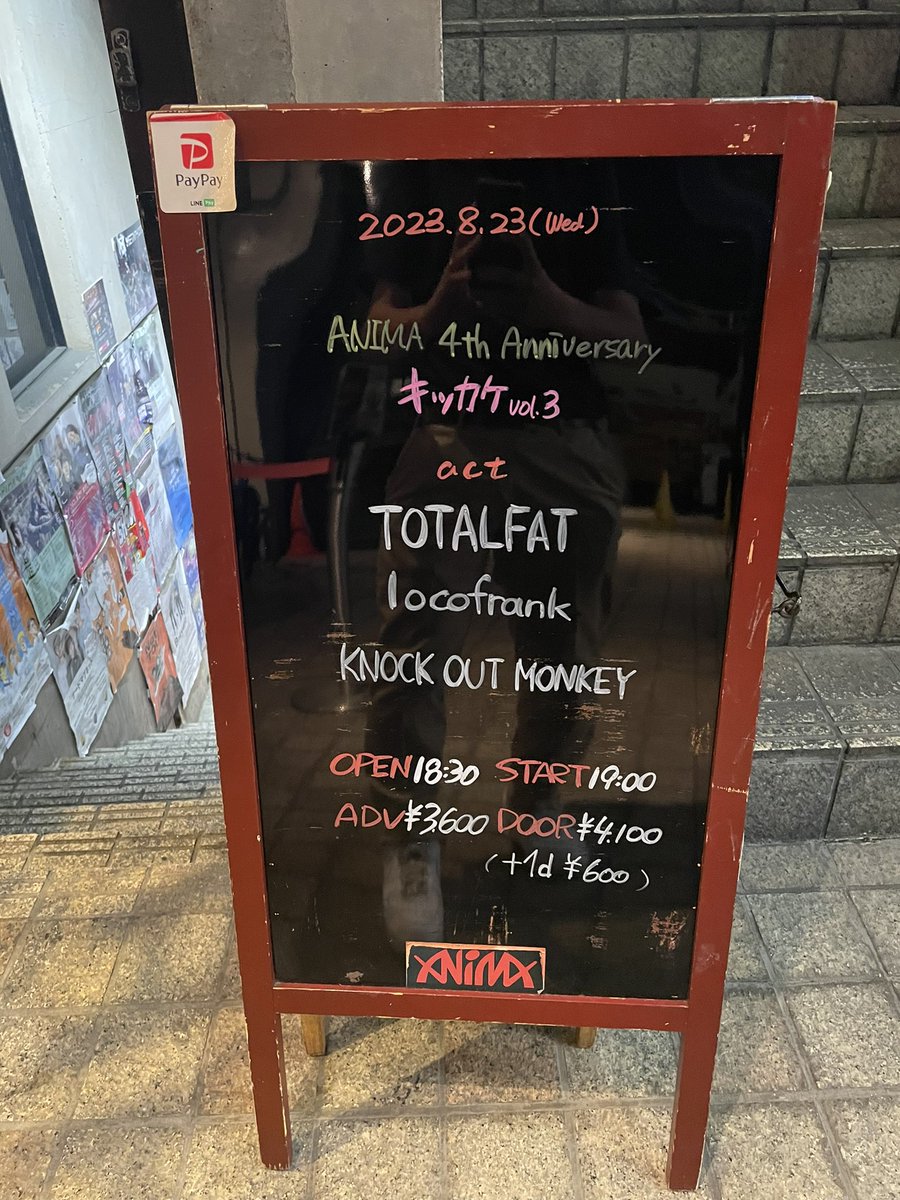 PayPay
LINE Pay
2023.8.23(Wed.)
ANIMA 4th Anniversary
キッカケ vol.3
act
TOTALFAT
locofrank
KNOCK OUT MONKEY
OPEN 18:30 START 19:00
ADV ¥3,600 DOOR ¥4,100
(+1d ¥600)
ANIMA